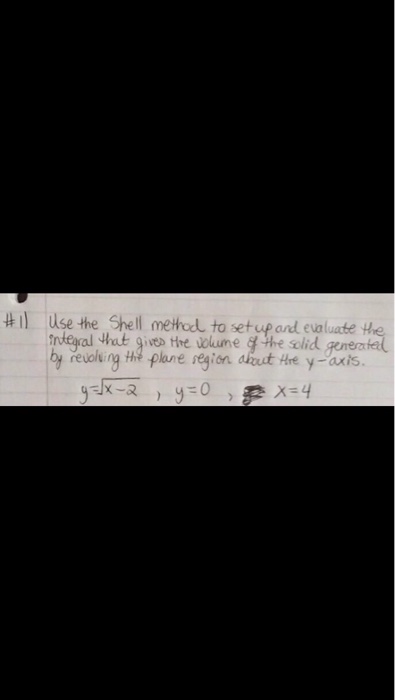 #11 Use the Shell method to set up and evaluate the
integral that gives the volume of the solid generated
by revolving the plane region about the y-axis.
y=√x-2 , y=0 , x=4